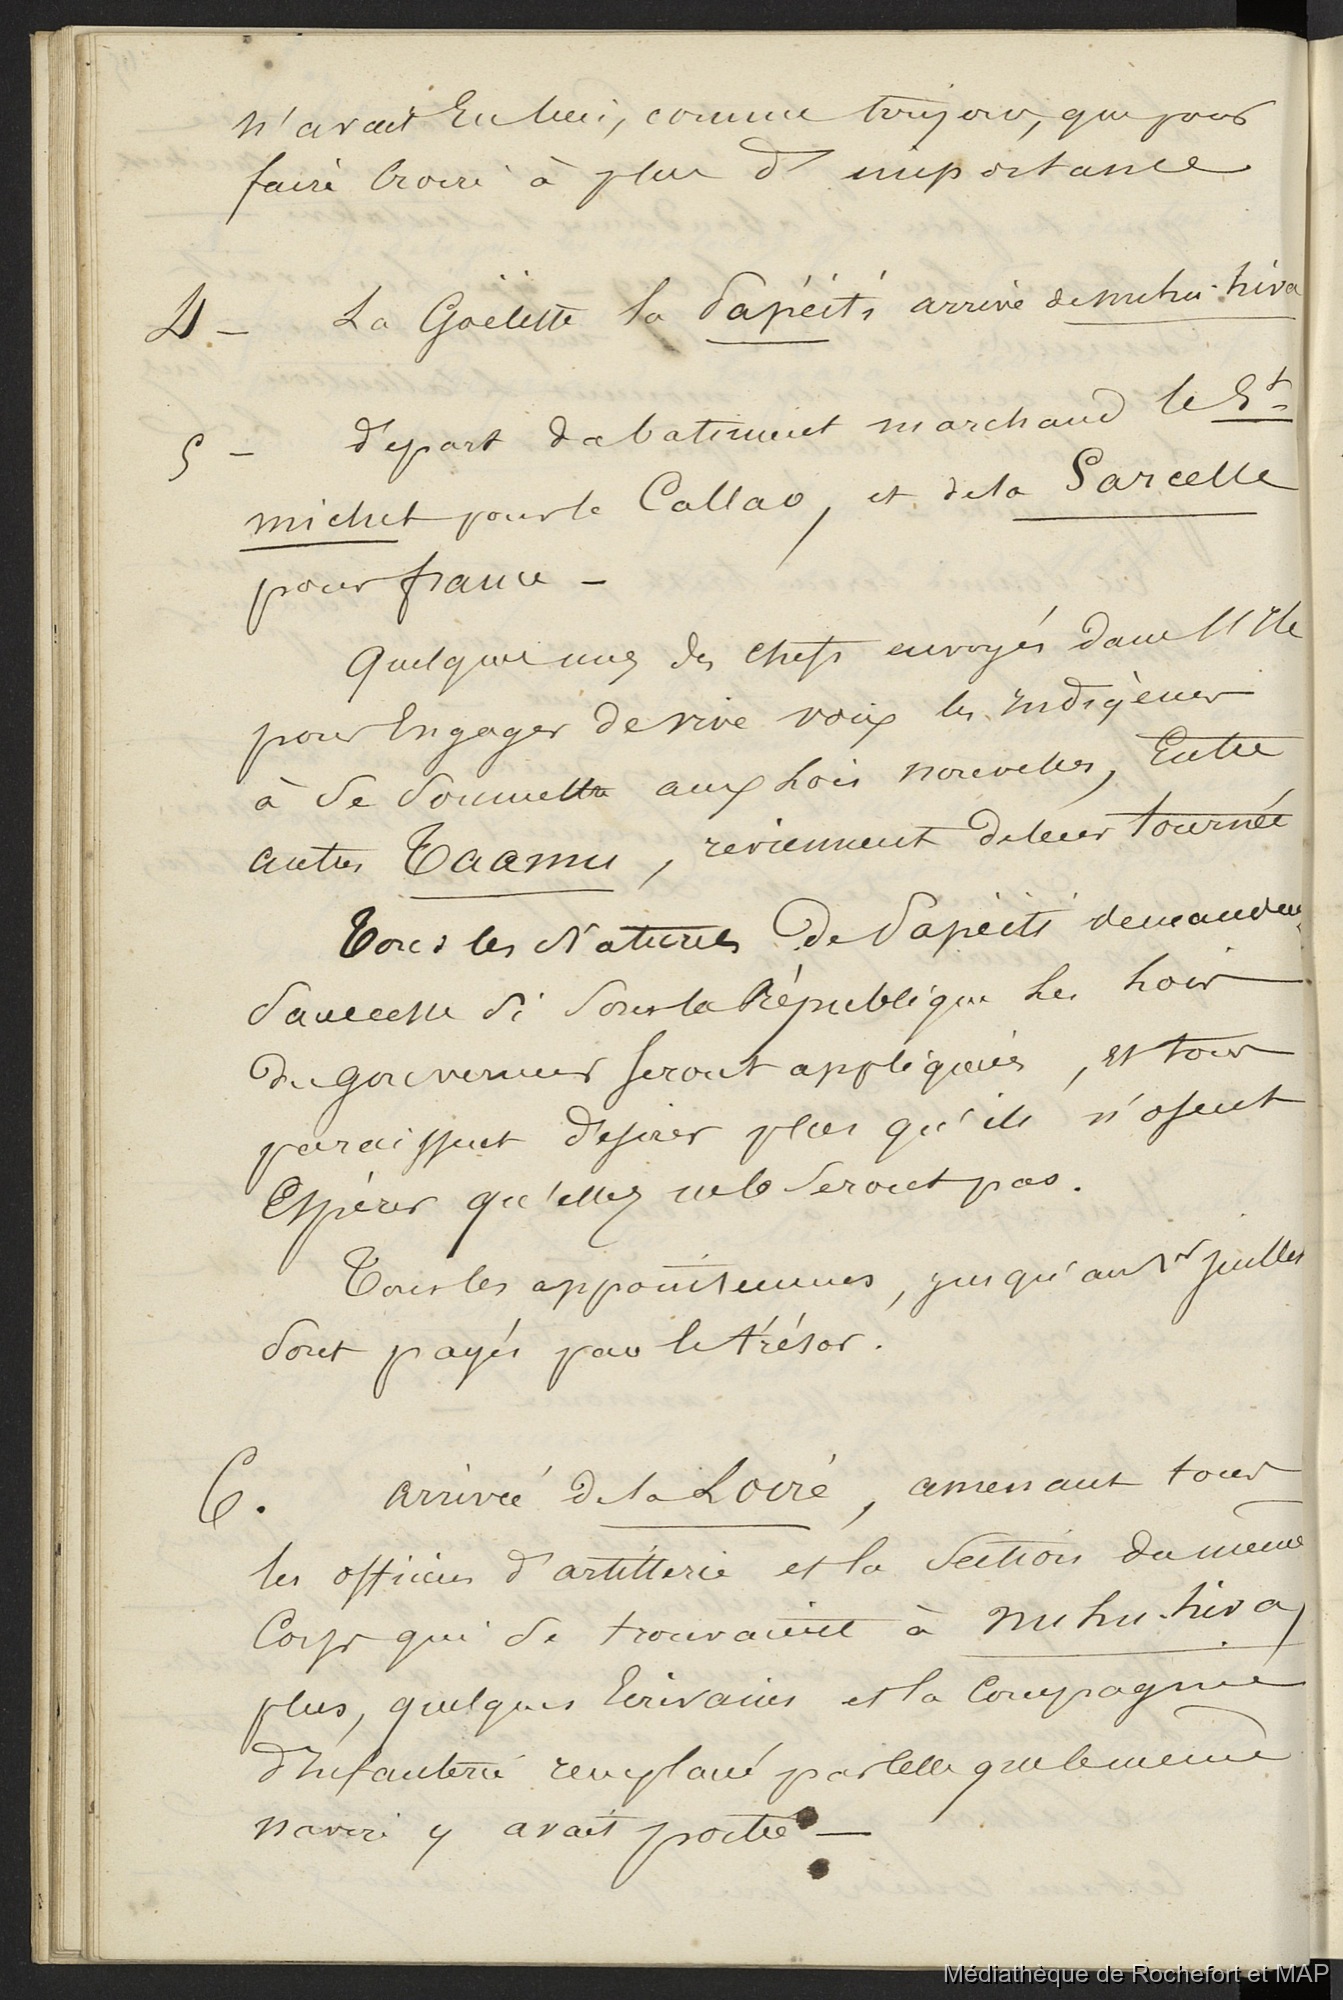 n'avait Eu lieu, comme toujours, que pour
faire Croire à plus d'importance
4 — La Goëlette la Papéïti arrive de nuhu-hiva
5 — départ du batiment marchand le St
michel pour le Callao, et de la Sarcelle
pour france —
Quelques uns des chefs envoyés dans l'Ile
pour Engager de vive voix les Indigènes
à se soumettre aux Lois nouvelles, Entre
autres Taamu, reviennent de leur tournée
Tous les Naturels de Papéïti demandent
sans cesse si sous la République les Lois
du gouverneur seront appliquées, et tous
paraissent désirer plus qu'ils n'osent
Espérer qu'elles ne le seront pas.
Tous les appointements, jusqu'au 1er juillet
sont payés par le trésor.
6. arrivée de la Loire, amenant tous
les officiers d'artillerie et la Section du même
Corps qui se trouvaient à nuhu-hiva,
plus, quelques Ecrivains et la Compagnie
d'Infanterie remplacé par celle que le même
navire y avait portée —
Médiathèque de Rochefort et MAP